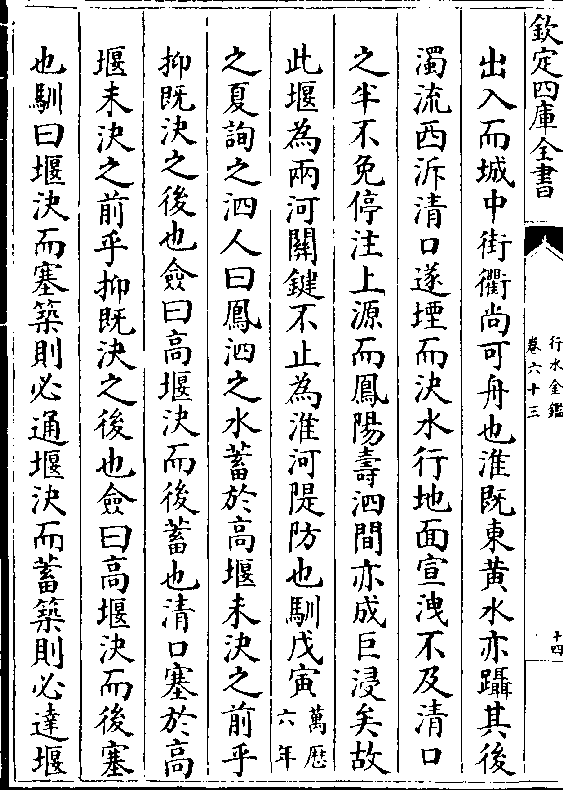 欽定四庫全書
行水金鑑
卷六十三
十四
出入而城中街衢尚可舟也淮既東黃水亦躡其後
濁流西泝清口遂堙而決水行地面宣洩不及清口
之半不免停注上源而鳳陽壽泗間亦成巨浸矣故
此堰為兩河關鍵不止為淮河隄防也馴戊寅萬厯六年
之夏詢之泗人曰鳳泗之水蓄於高堰未決之前乎
抑既決之後也僉曰高堰決而後蓄也清口塞於高
堰未決之前乎抑既決之後也僉曰高堰決而後塞
也馴曰堰決而塞築則必通堰決而蓄築則必達堰